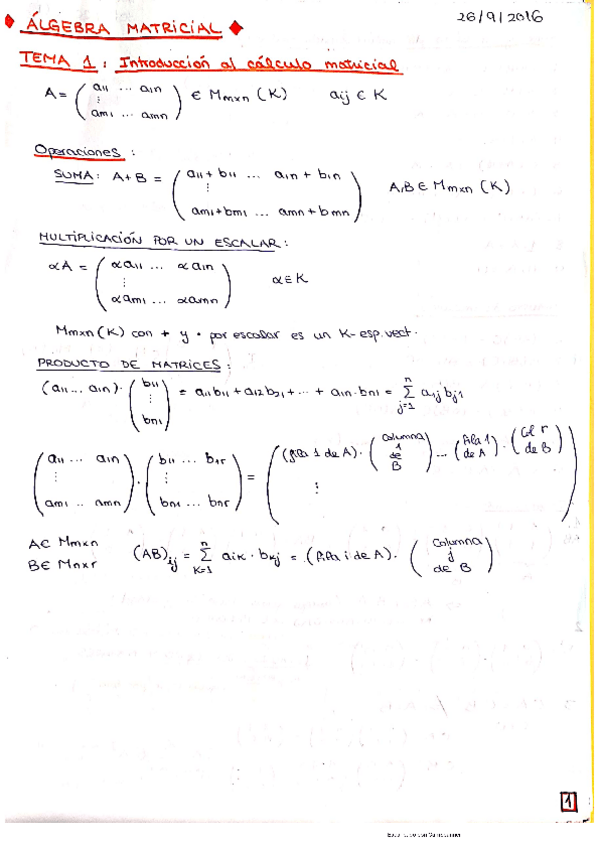 ♦ ÁLGEBRA MATRICIAL ♦ 26/9/2016
TEMA 1: Introducción al cálculo matricial
A = ( a11 ... a1n ⋮ am1 ... amn ) ∈ Mmxn (K) aij ∈ K
Operaciones:
SUMA: A+B = ( a11+b11 ... a1n+b1n ⋮ am1+bm1 ... amn+bmn ) A,B ∈ Mmxn (K)
MULTIPLICACIÓN POR UN ESCALAR:
αA = ( αa11 ... αa1n ⋮ αam1 ... αamn ) α∈K
Mmxn(K) con + y · por escalar es un K-esp.vect.
PRODUCTO DE MATRICES:
(a11 ... a1n) · ( b11 ⋮ bn1 ) = a11b11 + a12b21 + ... + a1n·bn1 = n∑j=1 a1jbj1
( a11 ... a1n ⋮ am1 .. amn ) · ( b11 ... b1r ⋮ bn1 ... bnr ) = ( (fila 1 de A) · ( columna 1 de B ) ... ( fila 1 de A ) · ( Col r de B ) ⋮ )
A∈ Mmxn
B∈ Mnxr
(AB)ij = n∑K=1 aik · bkj = (fila i de A) · ( Columna j de B )
1